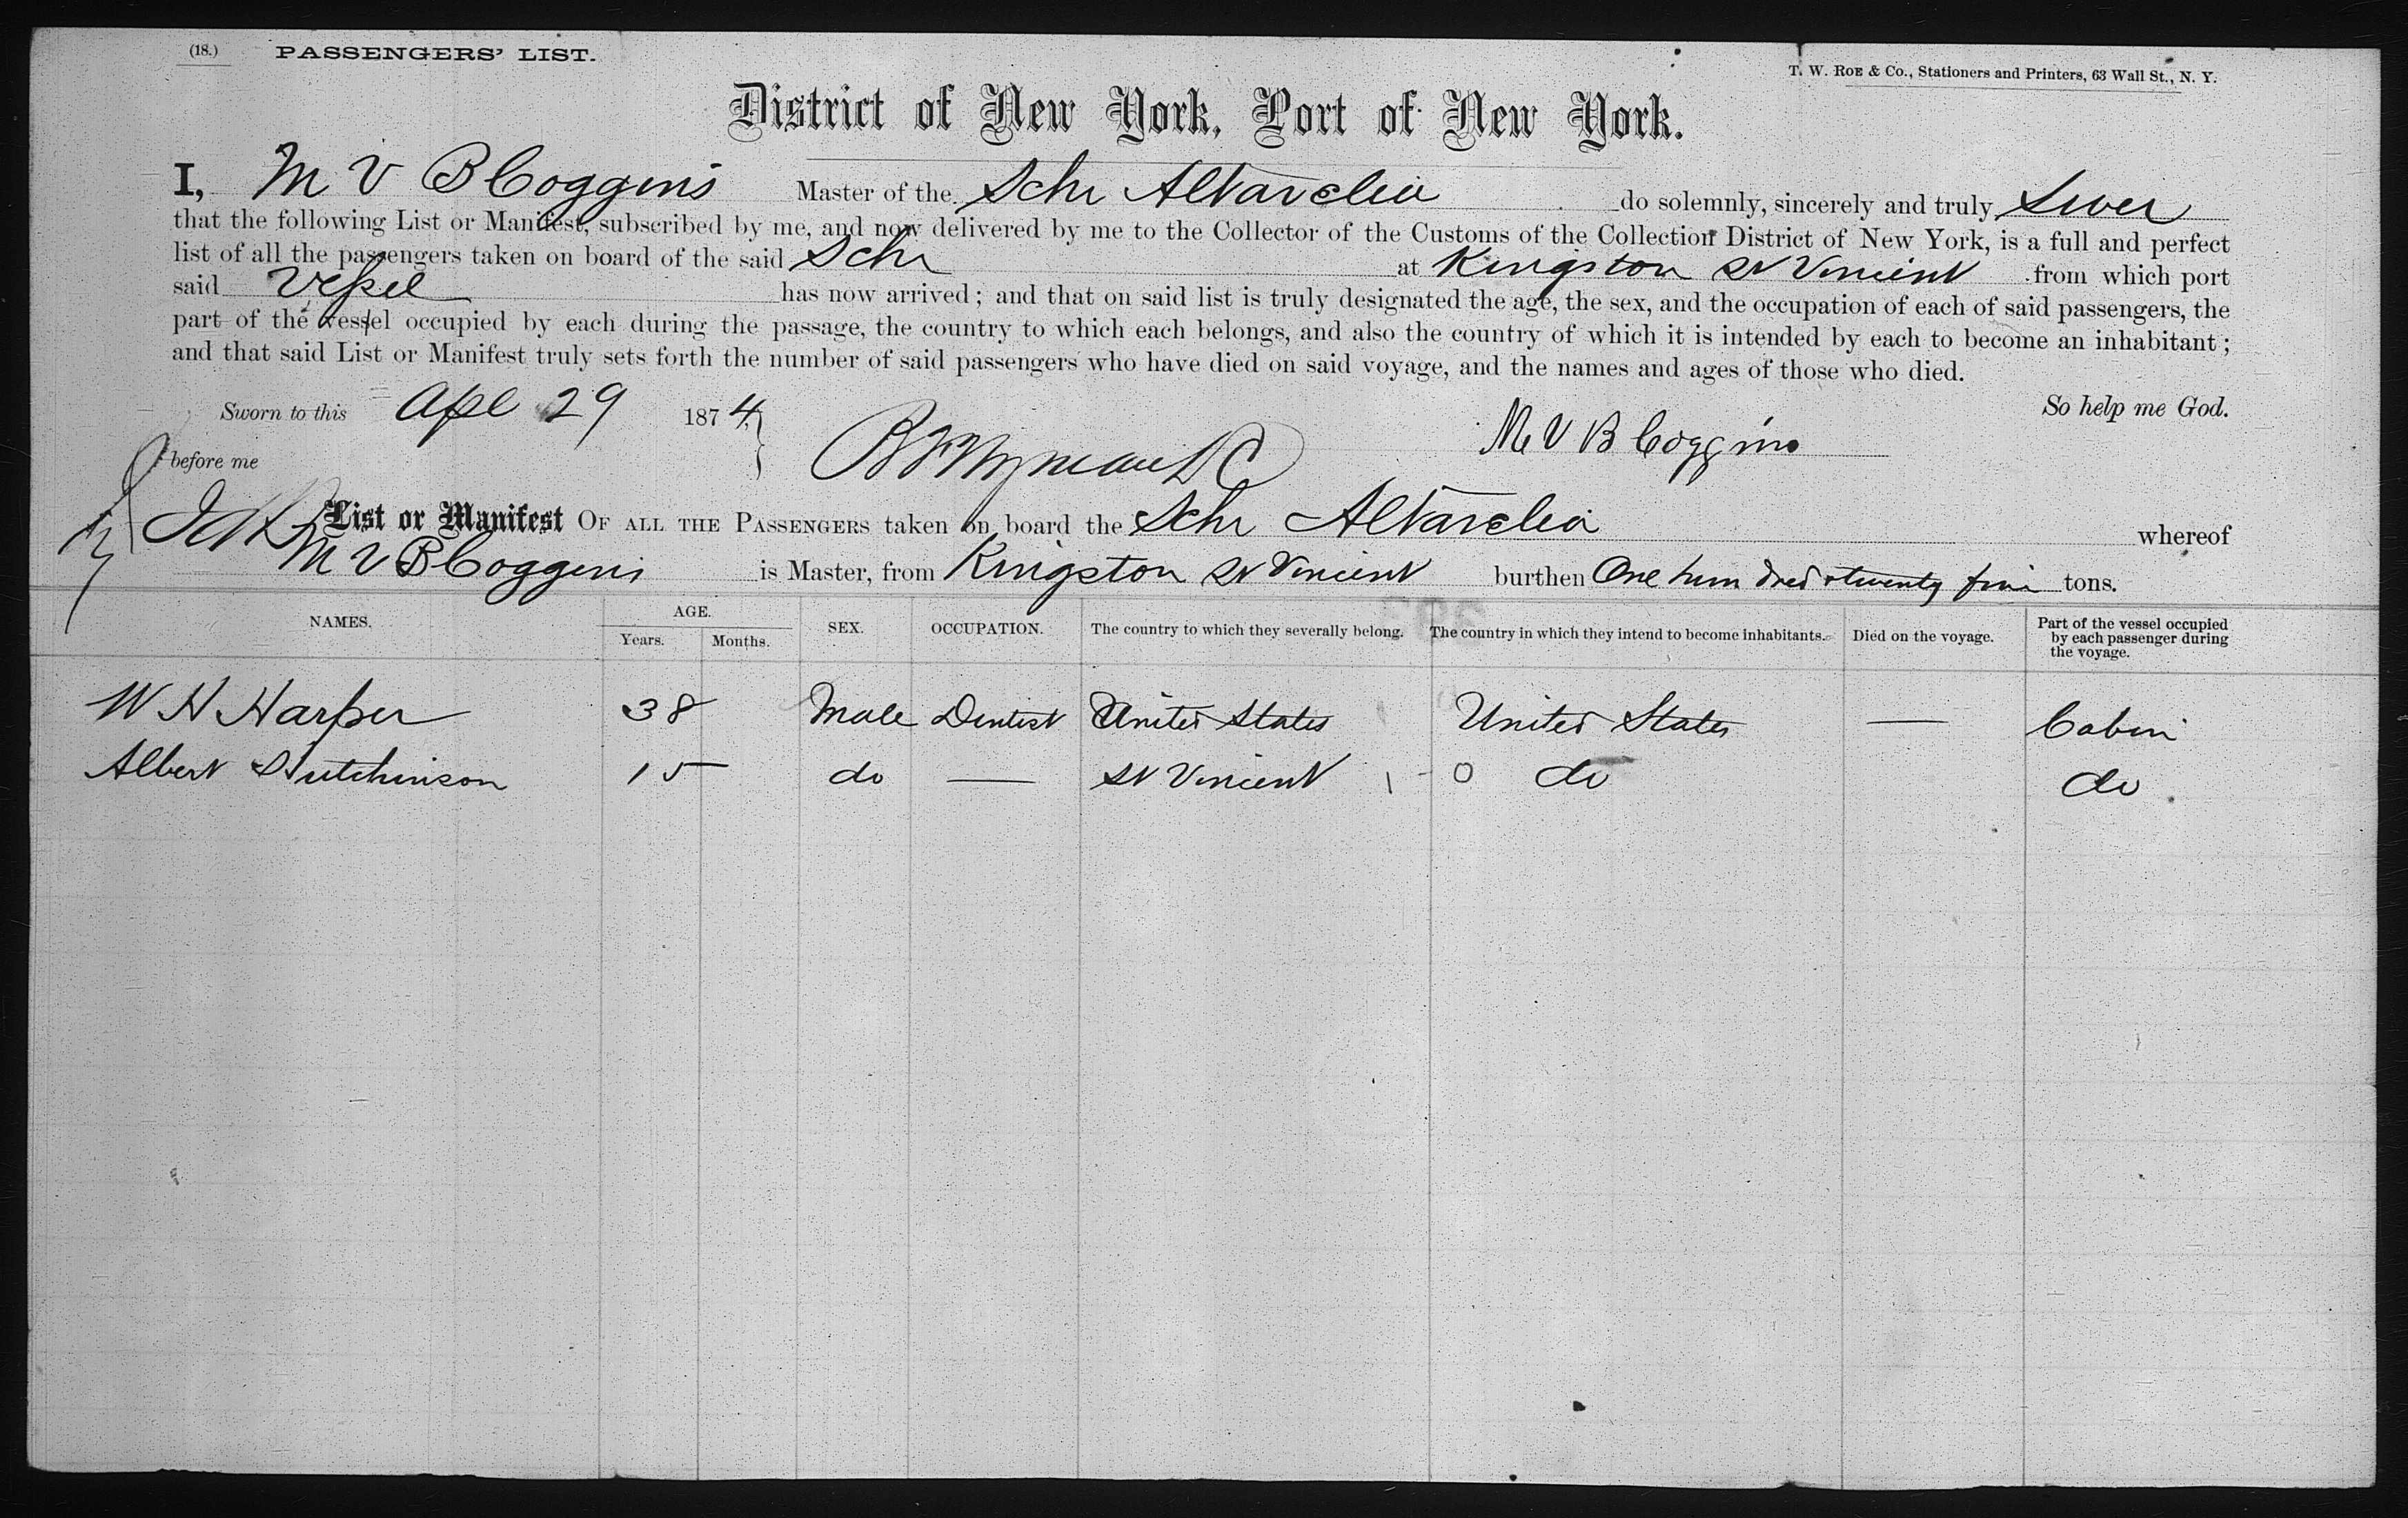 (18.) PASSENGERS' LIST.
T. W. ROE & Co., Stationers and Printers, 63 Wall St., N. Y.
District of New York, Port of New York.
I, M V B Coggins Master of the Schr Altavelia do solemnly, sincerely and truly Swer
that the following List or Manifest, subscribed by me, and now delivered by me to the Collector of the Customs of the Collection District of New York, is a full and perfect
list of all the passengers taken on board of the said Schr at Kingston St Vincent from which port
said Vessel has now arrived; and that on said list is truly designated the age, the sex, and the occupation of each of said passengers, the
part of the vessel occupied by each during the passage, the country to which each belongs, and also the country of which it is intended by each to become an inhabitant;
and that said List or Manifest truly sets forth the number of said passengers who have died on said voyage, and the names and ages of those who died.
Sworn to this Apl 29 1874 So help me God.
before me M V B Coggins
List or Manifest OF ALL THE PASSENGERS taken on board the Schr Altavelia whereof
M V B Coggins is Master, from Kingston St Vincent burthen One hundred & twenty five tons.
NAMES. AGE. Years. Months. SEX. OCCUPATION. The country to which they severally belong. The country in which they intend to become inhabitants. Died on the voyage. Part of the vessel occupied by each passenger during the voyage.
W H Harper 38 Male Dentist United States United States — Cabin
Albert Hutchinson 15 do — St Vincent do do